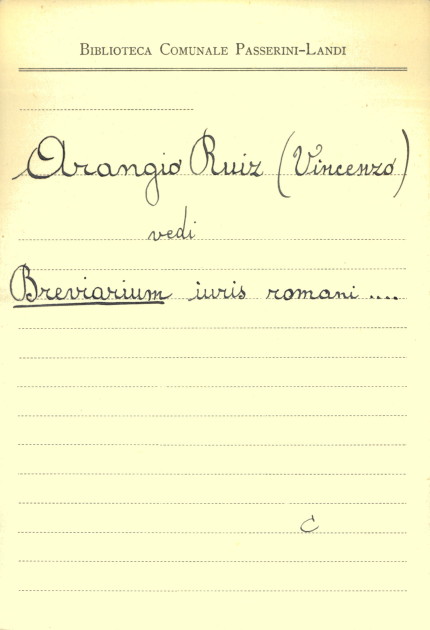 BIBLIOTECA COMUNALE PASSERINI-LANDI
Arangio Ruiz (Vincenzo)
vedi
Breviarium iuris romani ....
C